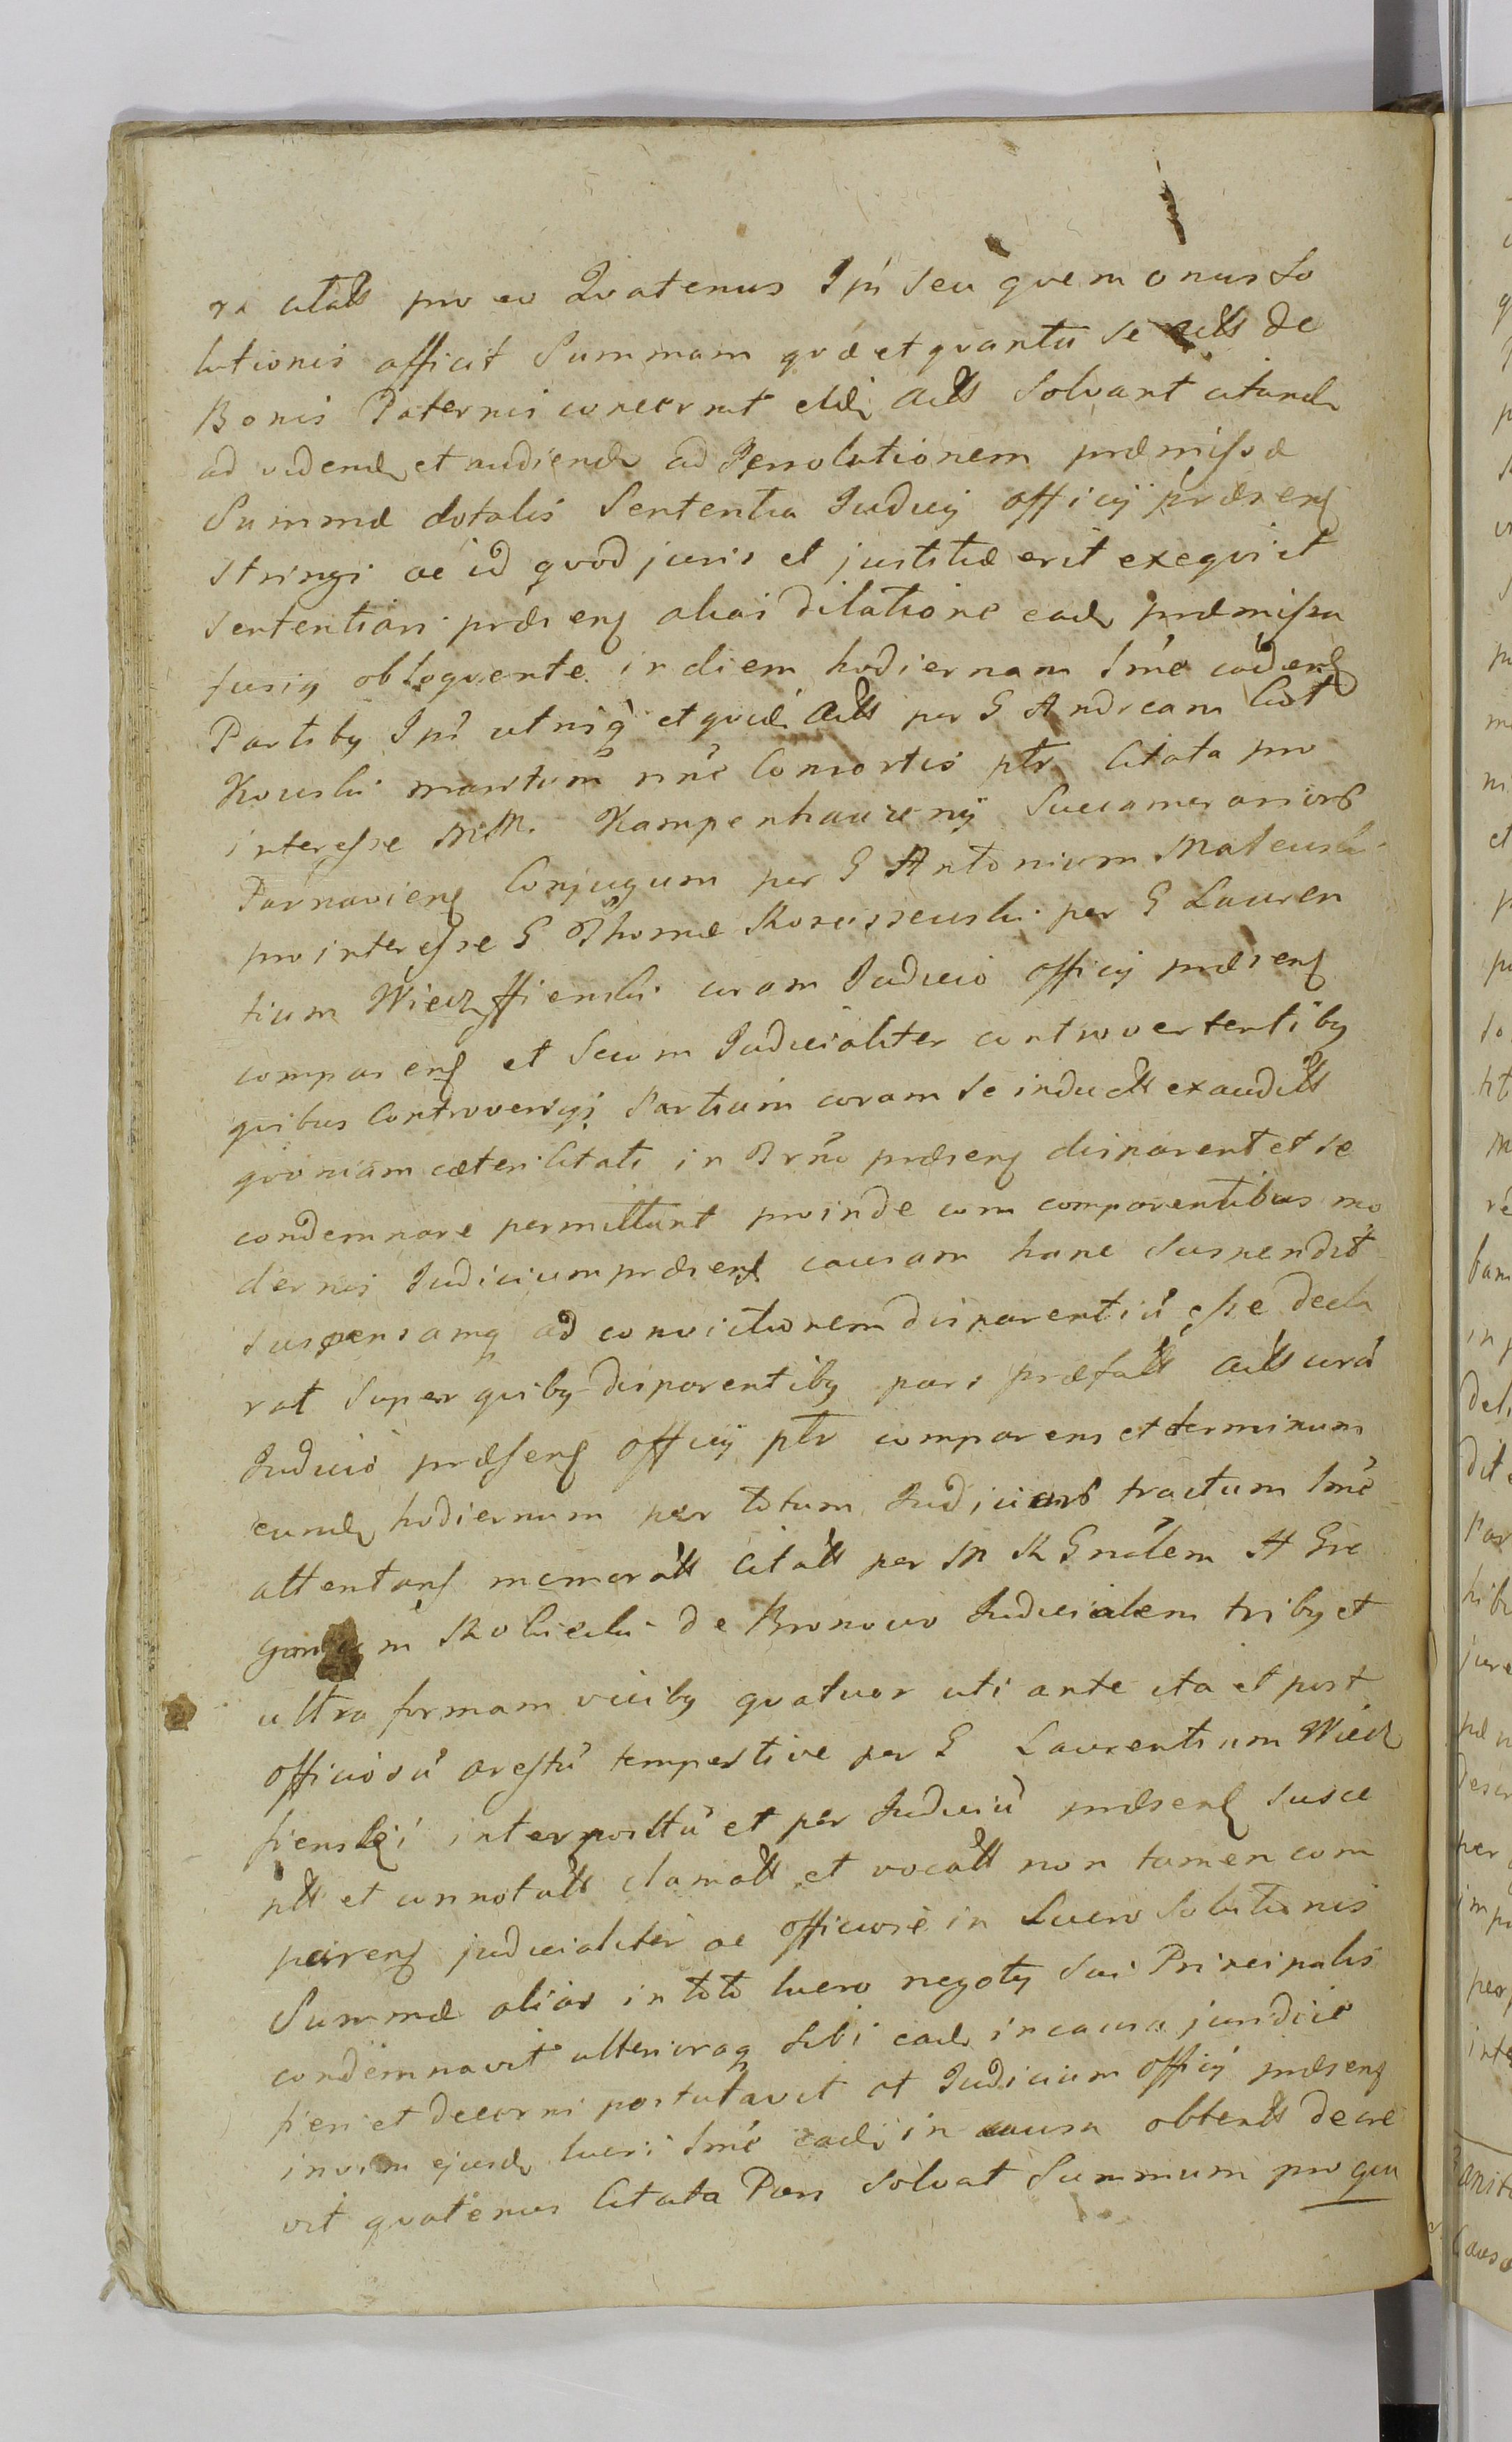 ra citatis pro eo Qvatenus Ipi seu qvem onus so
lutionis afficit Summam qvæ et qvantũ se actis de
Bonis Paternis concernit eidẽ Actis Solvant citand
ad videnđ et audienđ ad Persolutionem præmissæ
Summæ dotalis Sententia Judicij officij præsenş
stringi ac id qvod juris et justitiæ erit exeqvi et
Sententiari præsenş alias dilatione eade præmissa
fusig obloqvente in diem hodiernam lmẽ cadenş
Partiby Ipi utrisq et qvidẽ Actis per G Andream
Kowski maritum nne Consortis ptr Citata pro
interesse MM. Kampenhauzenij Succamerarior
Parnavienş Conjugum per G Antonium Mateuski
pro interesse G Thomæ Morzyszewski per G Lauren
tium Wiechffienski coram Judicio officij præsenş
comparenş et Secum Judicialiter controvertentiby
qvibus Controversijs Partium coram se inductis exauditis
qvoniam cæteri Citati in Trno præsenş disparent et se
condemnare permittunt proinde cum comparentibus mo
dernis Judicium præsenş causam hanc suspendit
suspensamq ad convictionem disparentiũ esse decla
rat Super qviby disparentiby pars præfatis Actis corã
Judicio præsenş officij ptr comparens et terminum
eunde hodiernum per totum Judicior tractum lmẽ
attentanş memoratis Citatis per M R Gnalem A Gre
gorium Skolicki de Bronowo Judicialem triby et
ultra formam viciby qvatuor uti ante ita et post
officiosũ arestũ tempestive per G Laurentium Wiech
fienski interpositũ et per Judiciũ præsenş susce
ptis et connotatis clamatis et vocatis non tamen com
parenş judicialiter ac officiose in Lucro Solutionis
Summæ alias in toto lucro negotij sui Principalis
condemnavit ulteriusq Sibi eade in causa juridice
fieri et decerni postulavit at Judicium officij præsenş
in vim ejusde lucri lmẽ eade in causa obtentis decre
vit qvatenus Citata Pars Solvat Summam pro qua